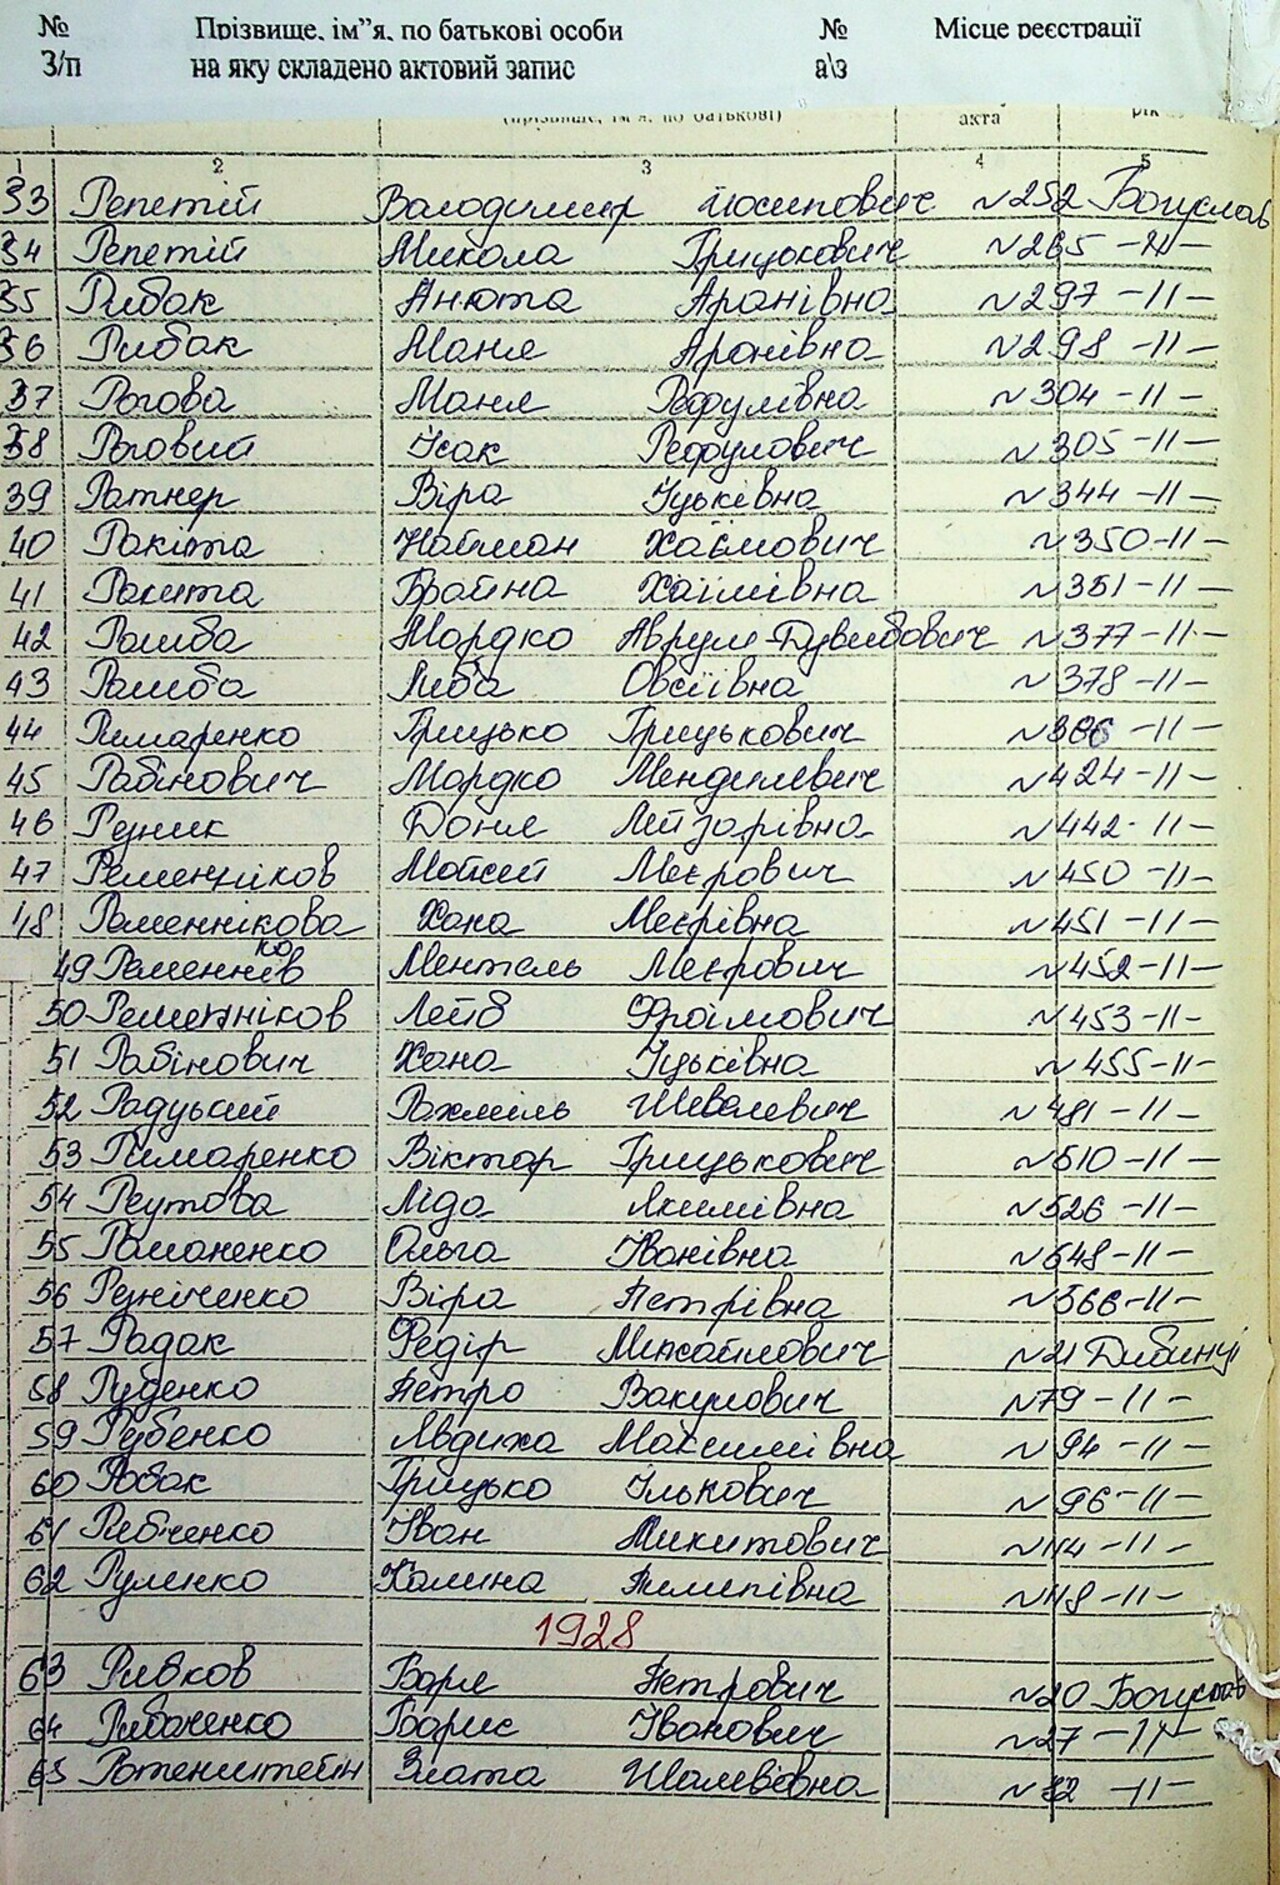 № Прізвище, ім”я, по батькові особи № Місце реєстрації
З/п на яку складено актовий запис а\з
(прізвище, ім'я, по батькові) акта рік
1 2 3 4 5
33 Репетій Володимир Йосипович №252 Богуслав
34 Репетій Микола Грицькович №265 -//-
35 Рибак Анюта Аронівна №297 -//-
36 Рибак Маня Аронівна №298 -//-
37 Рогова Маня Рефулівна №304 -//-
38 Роговий Ісак Рефулович №305 -//-
39 Ратнер Віра Іцьківна №344 -//-
40 Ракіта Нойман Хаїмович №350 -//-
41 Ракита Брайна Хаїмівна №351 -//-
42 Ромба Мордко Аврум-Дувидович №377 -//-
43 Ромба Либа Овсіївна №378 -//-
44 Римаренко Грицько Грицькович -//-
45 Рабінович Мордко Менделевич №424 -//-
46 Резник Доня Лейзорівна №442 -//-
47 Ременніков Мойсей Меєрович №450 -//-
48 Ременнікова Хана Меєрівна №451 -//-
49 Ременніков Ментель Меєрович №452 -//-
50 Ременніков Лейб Фроїмович №453 -//-
51 Рабінович Хана Іцьківна №455 -//-
52 Радуцький Рахміль Шевелевич №481 -//-
53 Римаренко Віктор Грицькович №510 -//-
54 Реутова Ліда Якимівна №526 -//-
55 Романенко Ольга Іванівна №548 -//-
56 Резніченко Віра Петрівна №566 -//-
57 Радак Федір Михайлович №21 Дибинці
58 Рубенко Петро Вакулович №79 -//-
59 Рубенко Явдиха Максимівна №94 -//-
60 Робак Грицько Ількович №96 -//-
61 Рябченко Іван Микитович №114 -//-
62 Руленко Калина Пилипівна №118 -//-
1928
63 Ривков Боря Петрович №20 Богуслав
64 Рибаченко Борис Іванович №27 -//-
65 Ротенштейн Злата Шолевівна №32 -//-